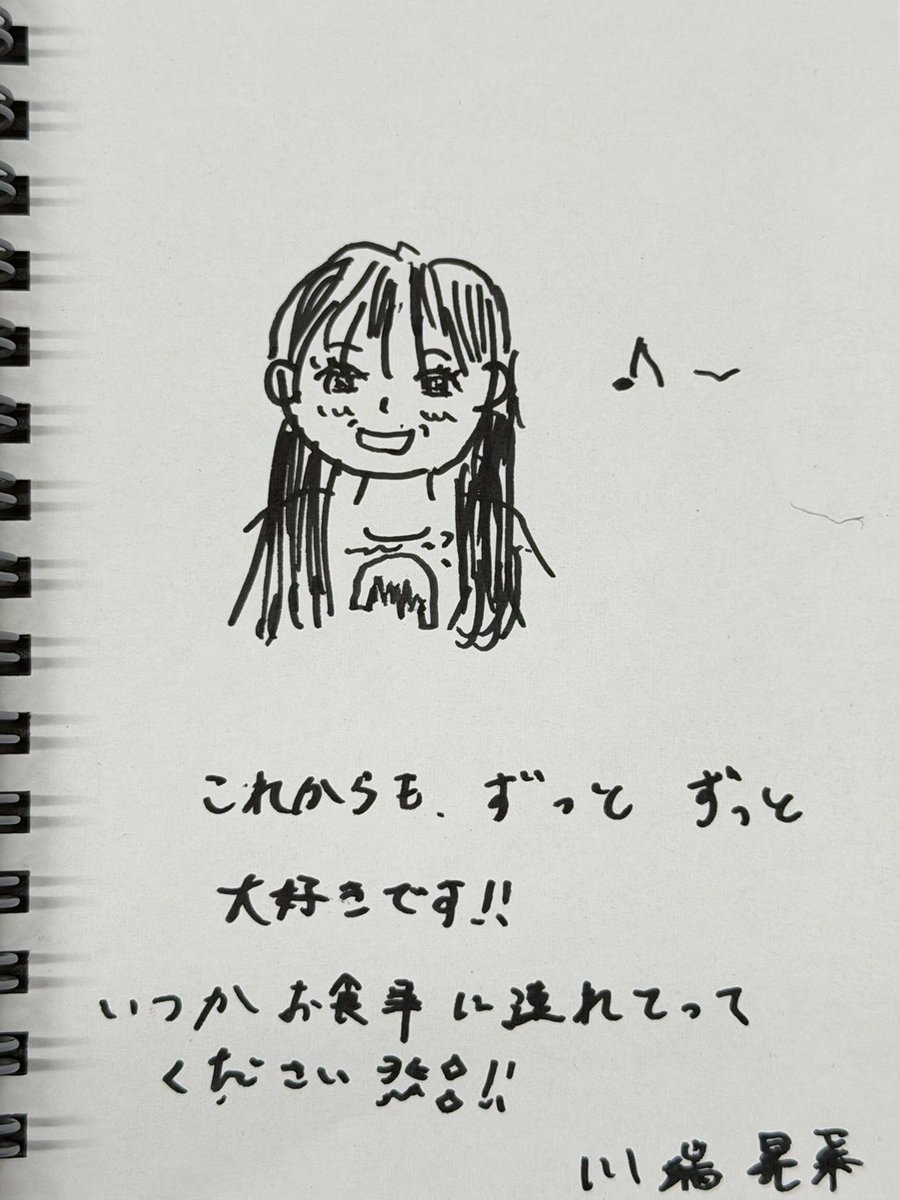 これからも、ずっと ずっと
大好きです!!
いつかお食事に連れてって
ください!!
川端晃菜